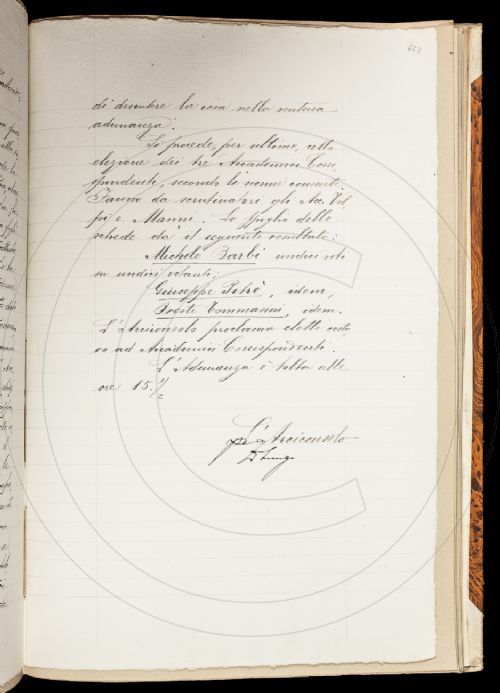 663
di discutere la cosa nella ventura
adunanza.
Si procede, per ultimo, alla
elezione dei tre Accademici Corri-
spondenti, secondo le norme consuete.
Fanno da scrutinatori gli Acc. Vol-
pi e Manni. Lo spoglio delle
schede dà il seguente resultato:
Michele Barbi undici voti
su undici votanti;
Giuseppe Pitrè, idem,
Oreste Tommasini, idem.
L'Arciconsolo proclama eletti costo
ro ad Accademici Corrispondenti.
L'Adunanza è tolta alle
ore 15 1/2
L'Arciconsolo